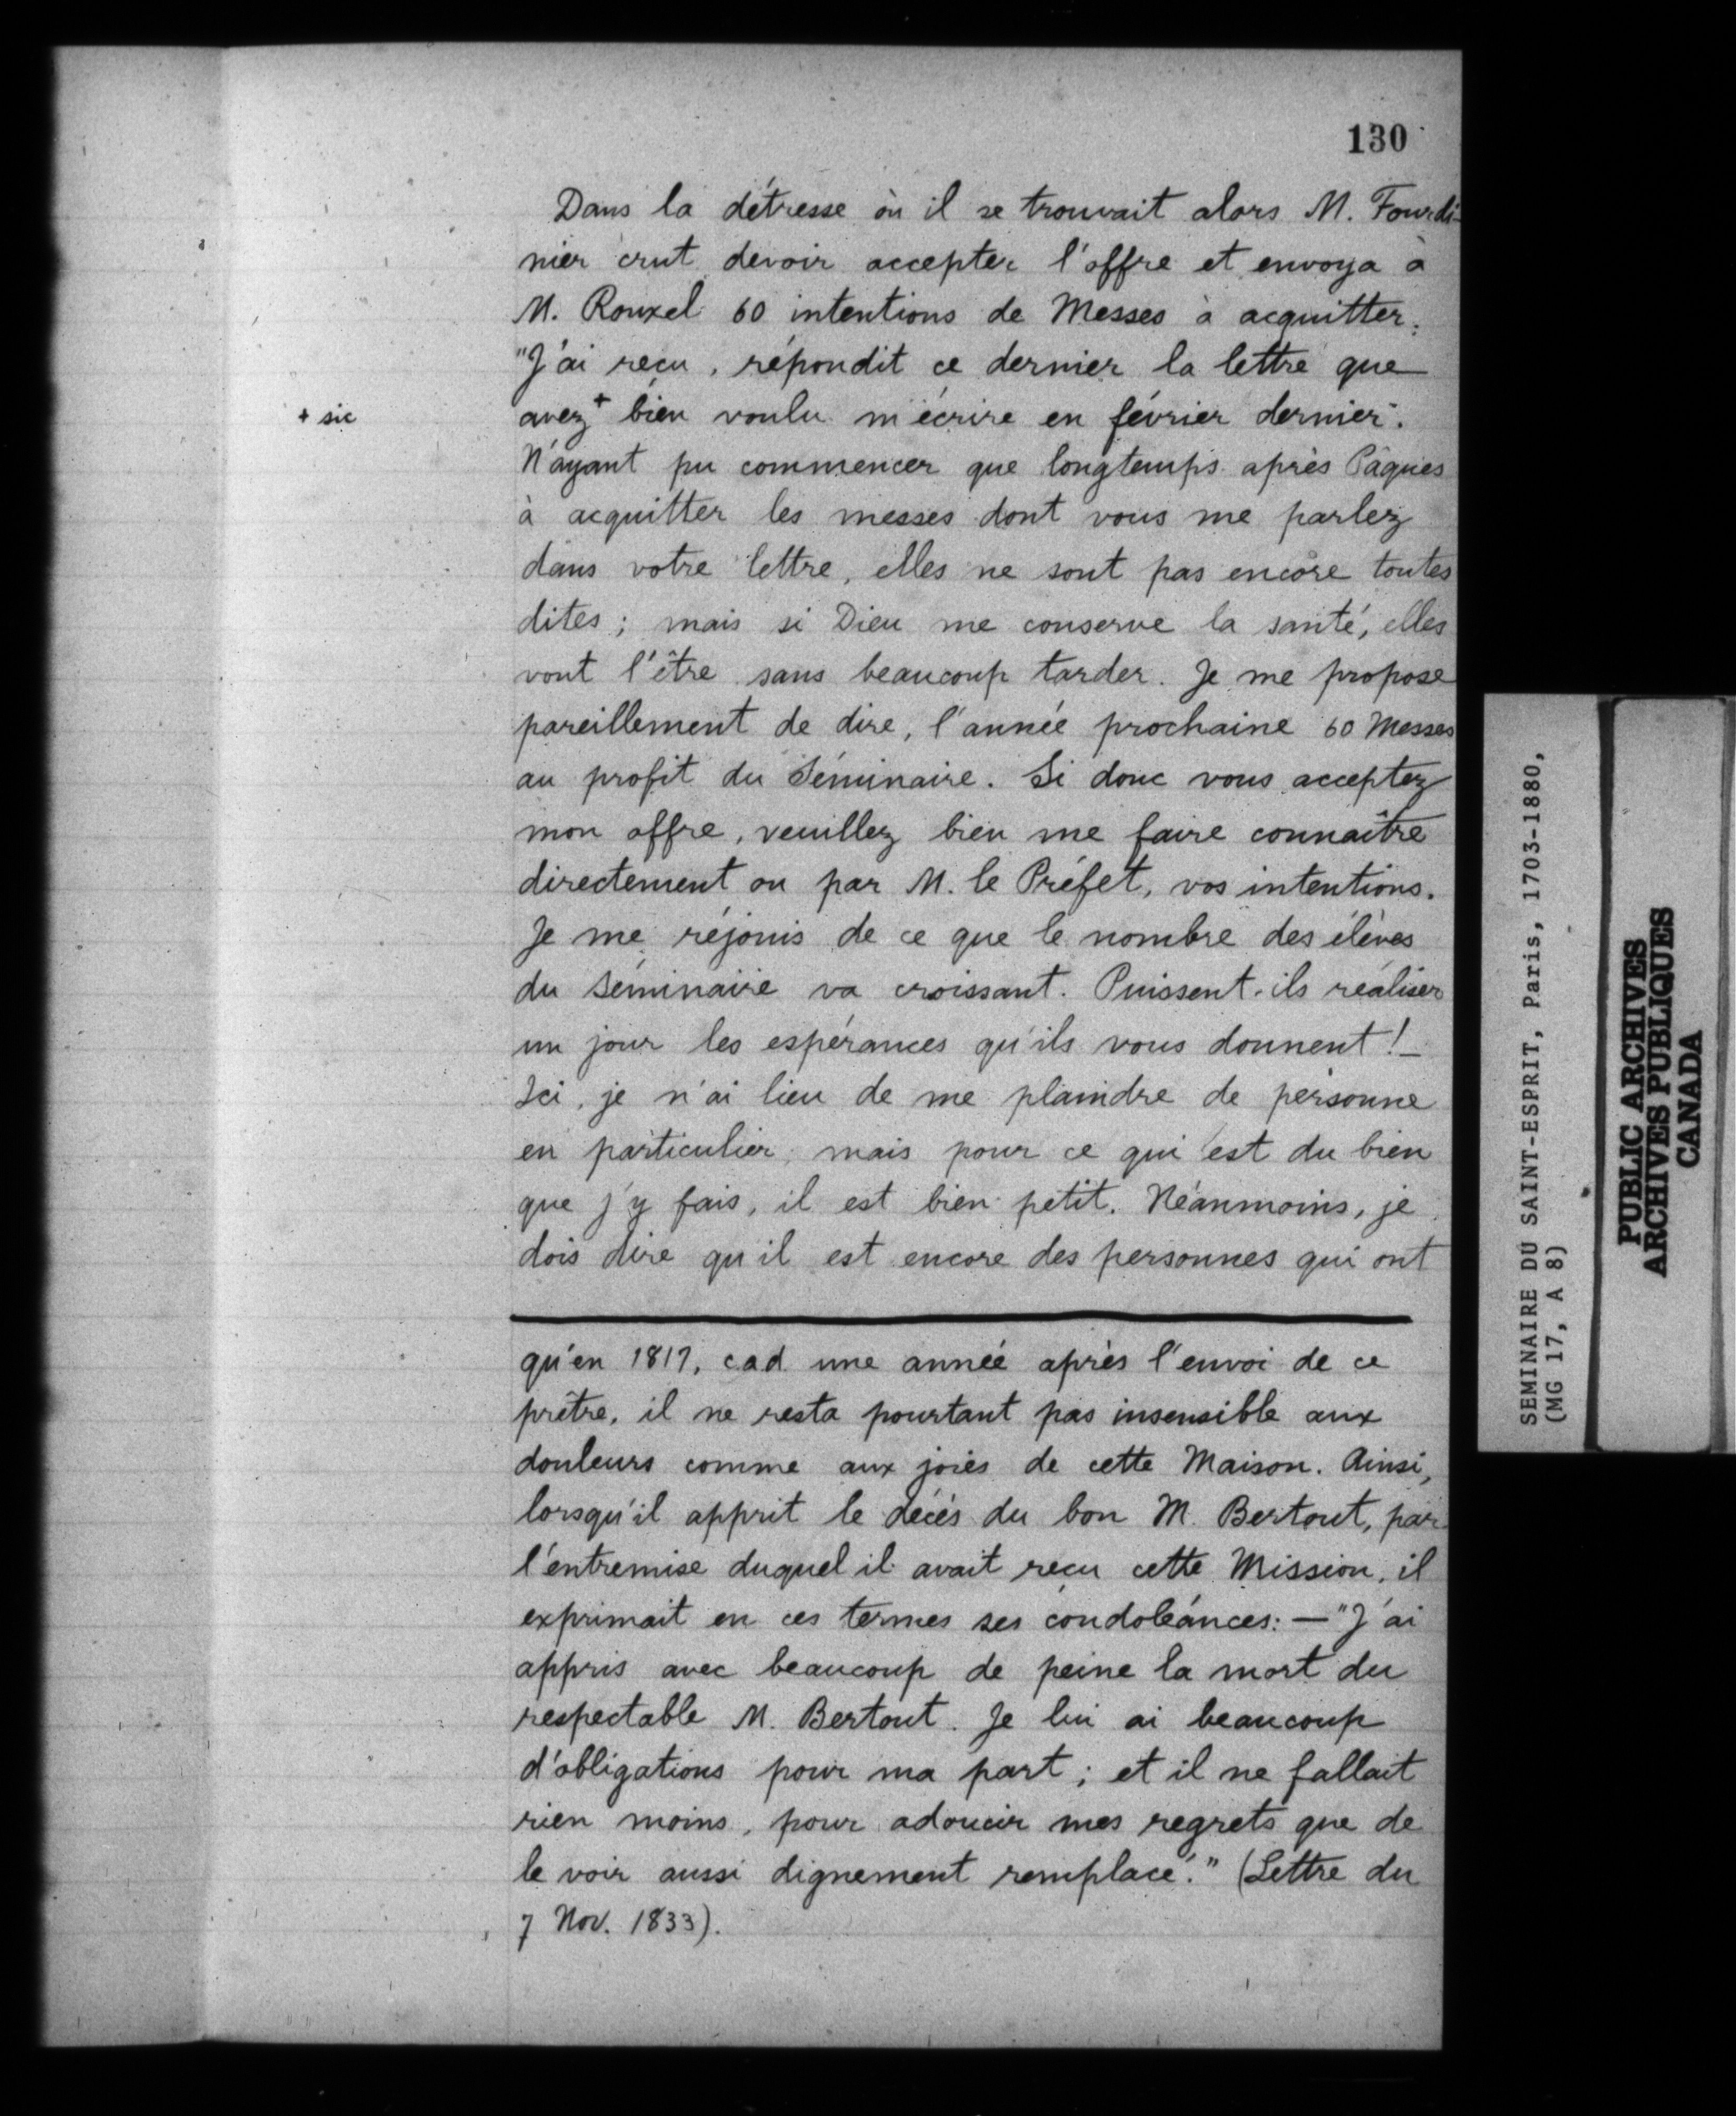 130
Dans la détresse où il se trouvait alors M. Fourdi-
nier crut devoir accepter l'offre et envoya à
M. Rouxel 60 intentions de Messes à acquitter.
"J'ai reçu, répondit ce dernier la lettre que
+ sic
avez+ bien voulu m'écrire en février dernier.
N'ayant pu commencer que longtemps après Pâques
à acquitter les messes dont vous me parlez
dans votre lettre, elles ne sont pas encore toutes
dites; mais si Dieu me conserve la santé, elles
vont l'être sans beaucoup tarder. Je me propose
pareillement de dire, l'année prochaine 60 Messes
au profit du Séminaire. Si donc vous acceptez
mon offre, veuillez bien me faire connaître
directement ou par M. le Préfet, vos intentions.
Je me réjouis de ce que le nombre des élèves
du Séminaire va croissant. Puissent-ils réaliser
un jour les espérances qu'ils vous donnent! -
Ici, je n'ai lieu de me plaindre de personne
en particulier, mais pour ce qui est du bien
que j'y fais, il est bien petit. Néanmoins, je
dois dire qu'il est encore des personnes qui ont
qu'en 1817, cad une année après l'envoi de ce
prêtre, il ne resta pourtant pas insensible aux
douleurs comme aux joies de cette Maison. Ainsi,
lorsqu'il apprit le décès du bon M. Bertout, par
l'entremise duquel il avait reçu cette Mission, il
exprimait en ces termes ses condoléances: — "J'ai
appris avec beaucoup de peine la mort du
respectable M. Bertout. Je lui ai beaucoup
d'obligations pour ma part; et il ne fallait
rien moins, pour adoucir mes regrets que de
le voir aussi dignement remplacé." (Lettre du
7 Nov. 1833).
SEMINAIRE DU SAINT-ESPRIT, Paris, 1703-1880,
(MG 17, A 8)
PUBLIC ARCHIVES
ARCHIVES PUBLIQUES
CANADA